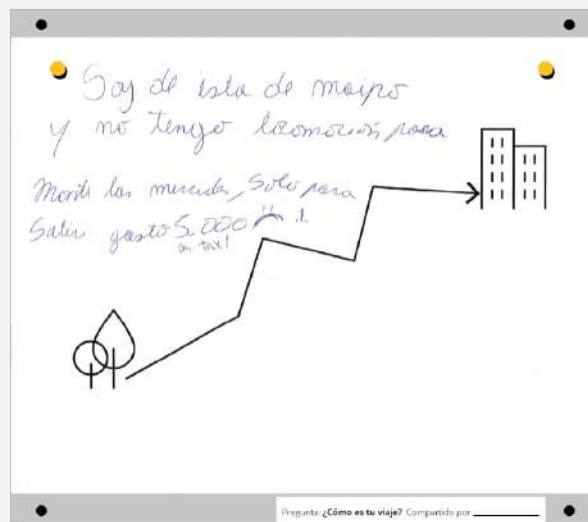 Soy de isla de maipo
y no tengo locomoción para
Monte las mercedes, Solo para
Salir gasto 5.000
en taxi
Pregunta: ¿Cómo es tu viaje? Compartido por